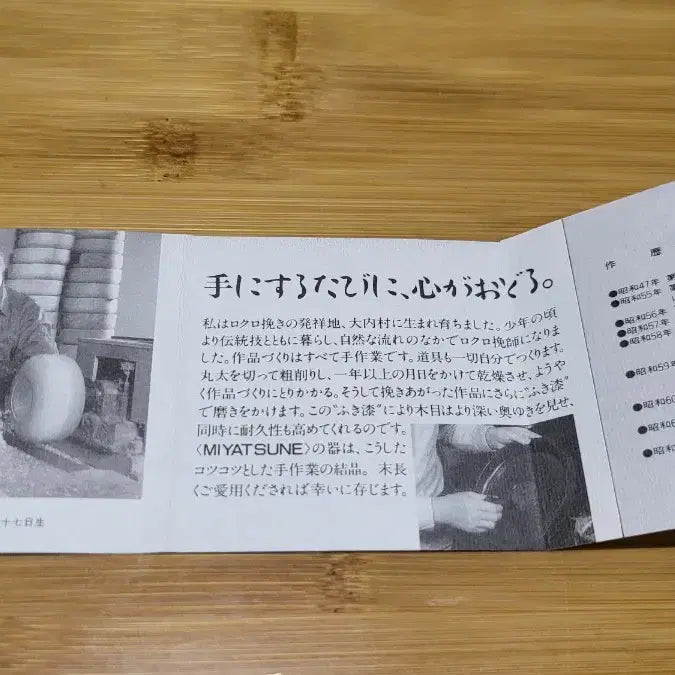 手にするたびに、心がおどる。
私はロクロ挽きの発祥地、大内村に生まれ育ちました。少年の頃
より伝統技とともに暮らし、自然な流れのなかでロクロ挽師になりま
した。作品づくりはすべて手作業です。道具も一切自分でつくります。
丸太を切って粗削りし、一年以上の月日をかけて乾燥させ、ようや
く作品づくりにとりかかる。そして挽きあがった作品にさらに"ふき漆"
で磨きをかけます。この"ふき漆"により木目はより深い奥ゆきを見せ、
同時に耐久性も高めてくれるのです。
〈MIYATSUNE〉の器は、こうした
コツコツとした手作業の結晶。末長
くご愛用くだされば幸いに存じます。
十七日生
作 歴
●昭和47年 第
●昭和55年 第
●昭和56年
●昭和57年
●昭和58年
●昭和59年
●昭和60
●昭和6
●昭和